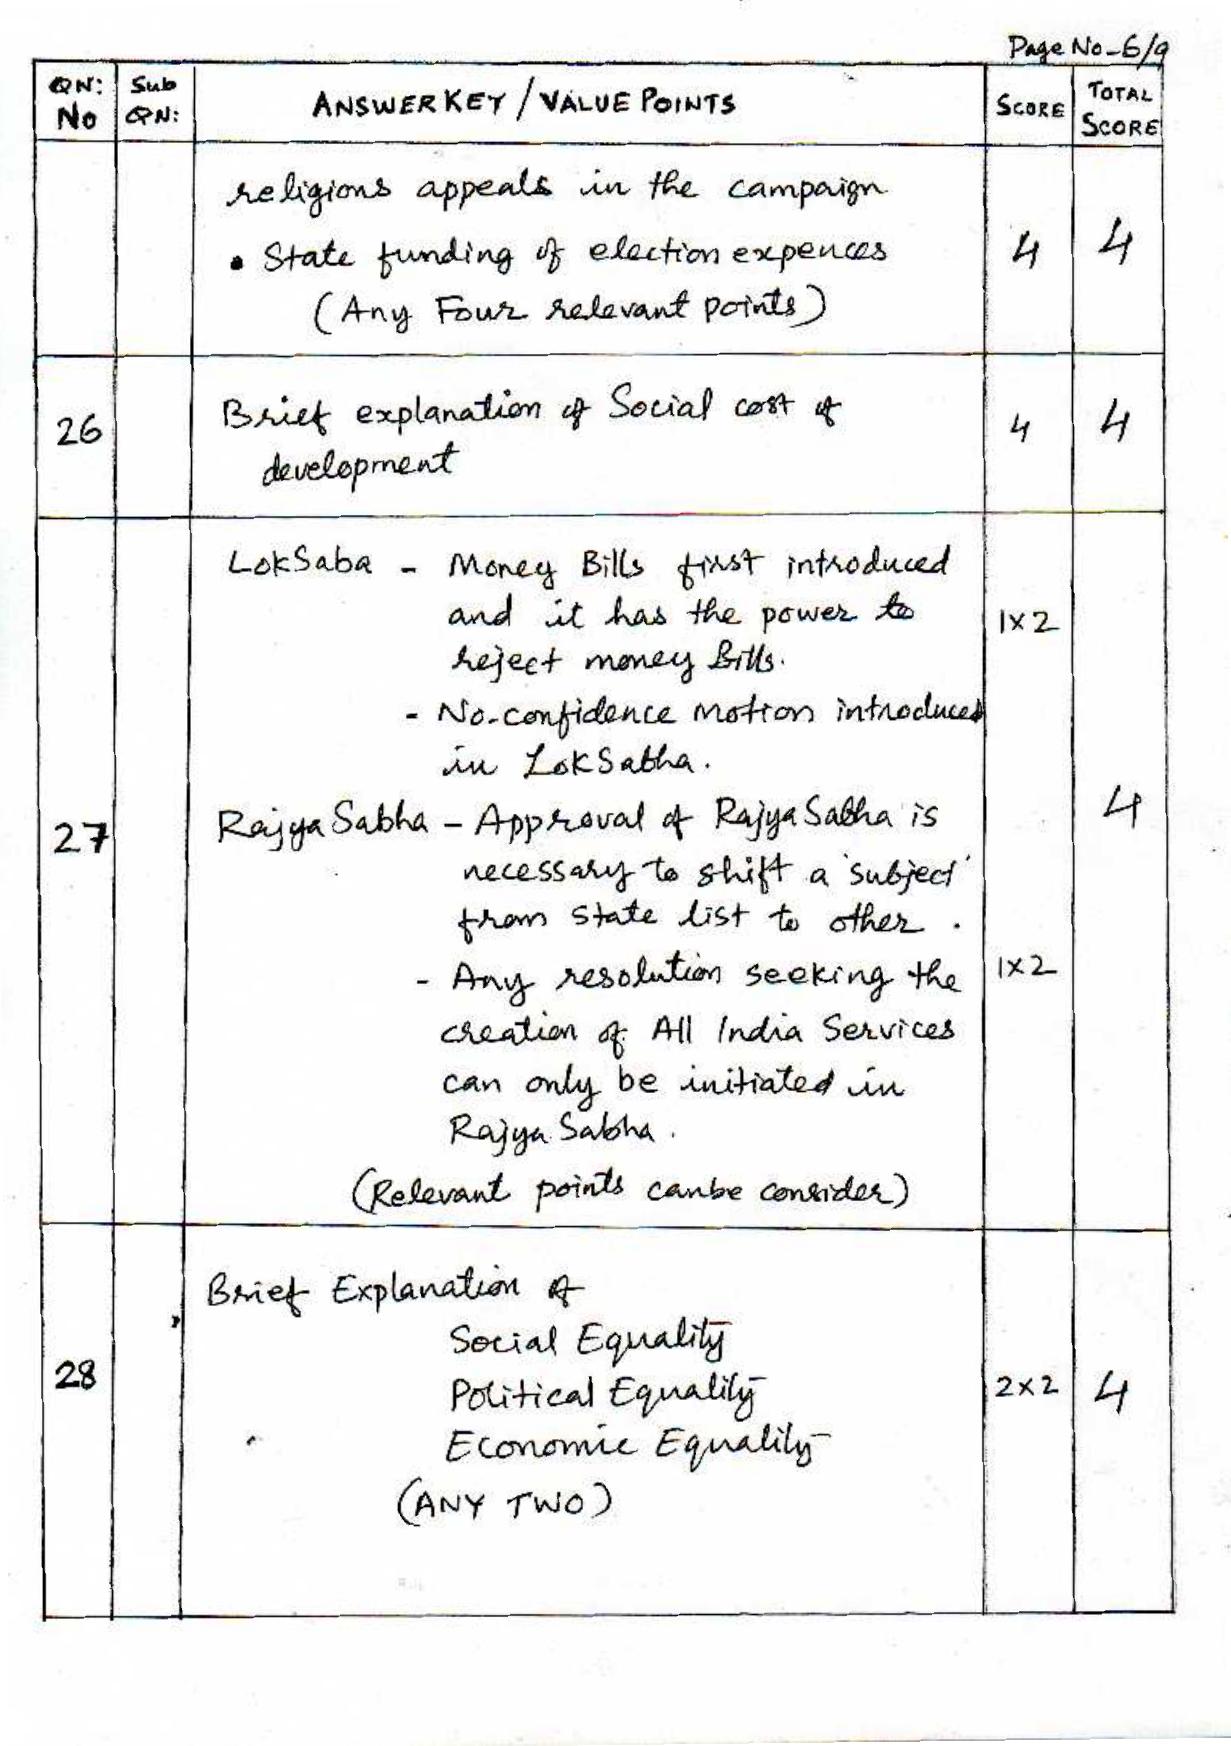 Page No-6/9
QN: No
Sub QN:
ANSWER KEY / VALUE POINTS
SCORE
TOTAL SCORE
religions appeals in the campaign
• State funding of election expences
(Any Four relevant points)
4
4
26
Brief explanation of Social cost of
development
4
4
27
LokSaba - Money Bills first introduced
and it has the power to
reject money Bills.
- No-confidence motion introduced
in LokSabha.
1x2
RajyaSabha - Approval of RajyaSabha is
necessary to shift a 'subject'
from state list to other.
- Any resolution seeking the
creation of All India Services
can only be initiated in
Rajya Sabha.
(Relevant points canbe consider)
1x2
4
28
Brief Explanation of
Social Equality
Political Equality
Economic Equality
(ANY TWO)
2x2
4